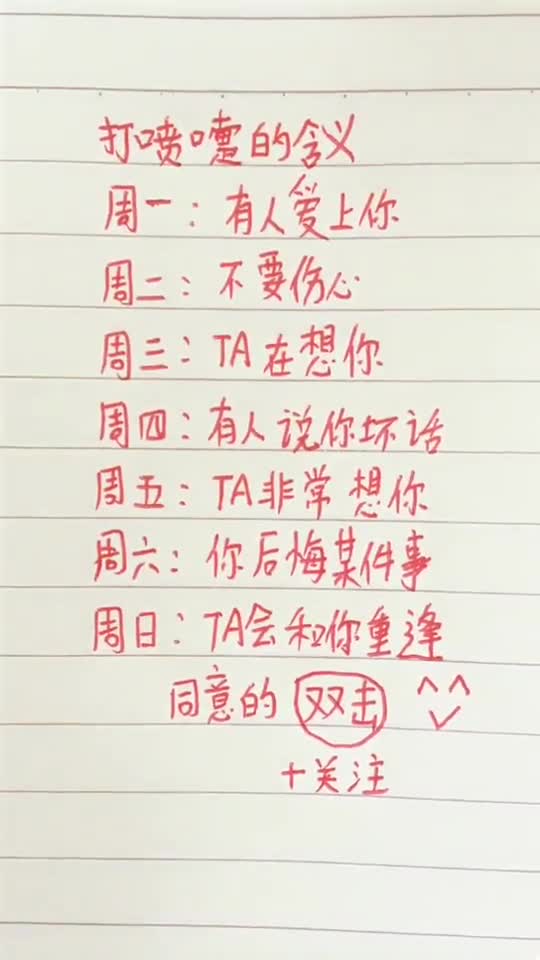 打喷嚏的含义
周一：有人爱上你
周二：不要伤心
周三：TA在想你
周四：有人说你坏话
周五：TA非常想你
周六：你后悔某件事
周日：TA会和你重逢
同意的 双击 ^^
+关注